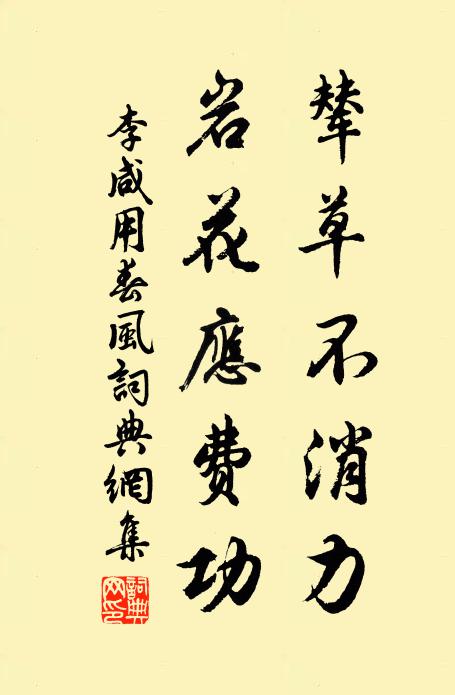 輦草不消力
岩花應費功
李咸用春風詞典網集
詞典
网印